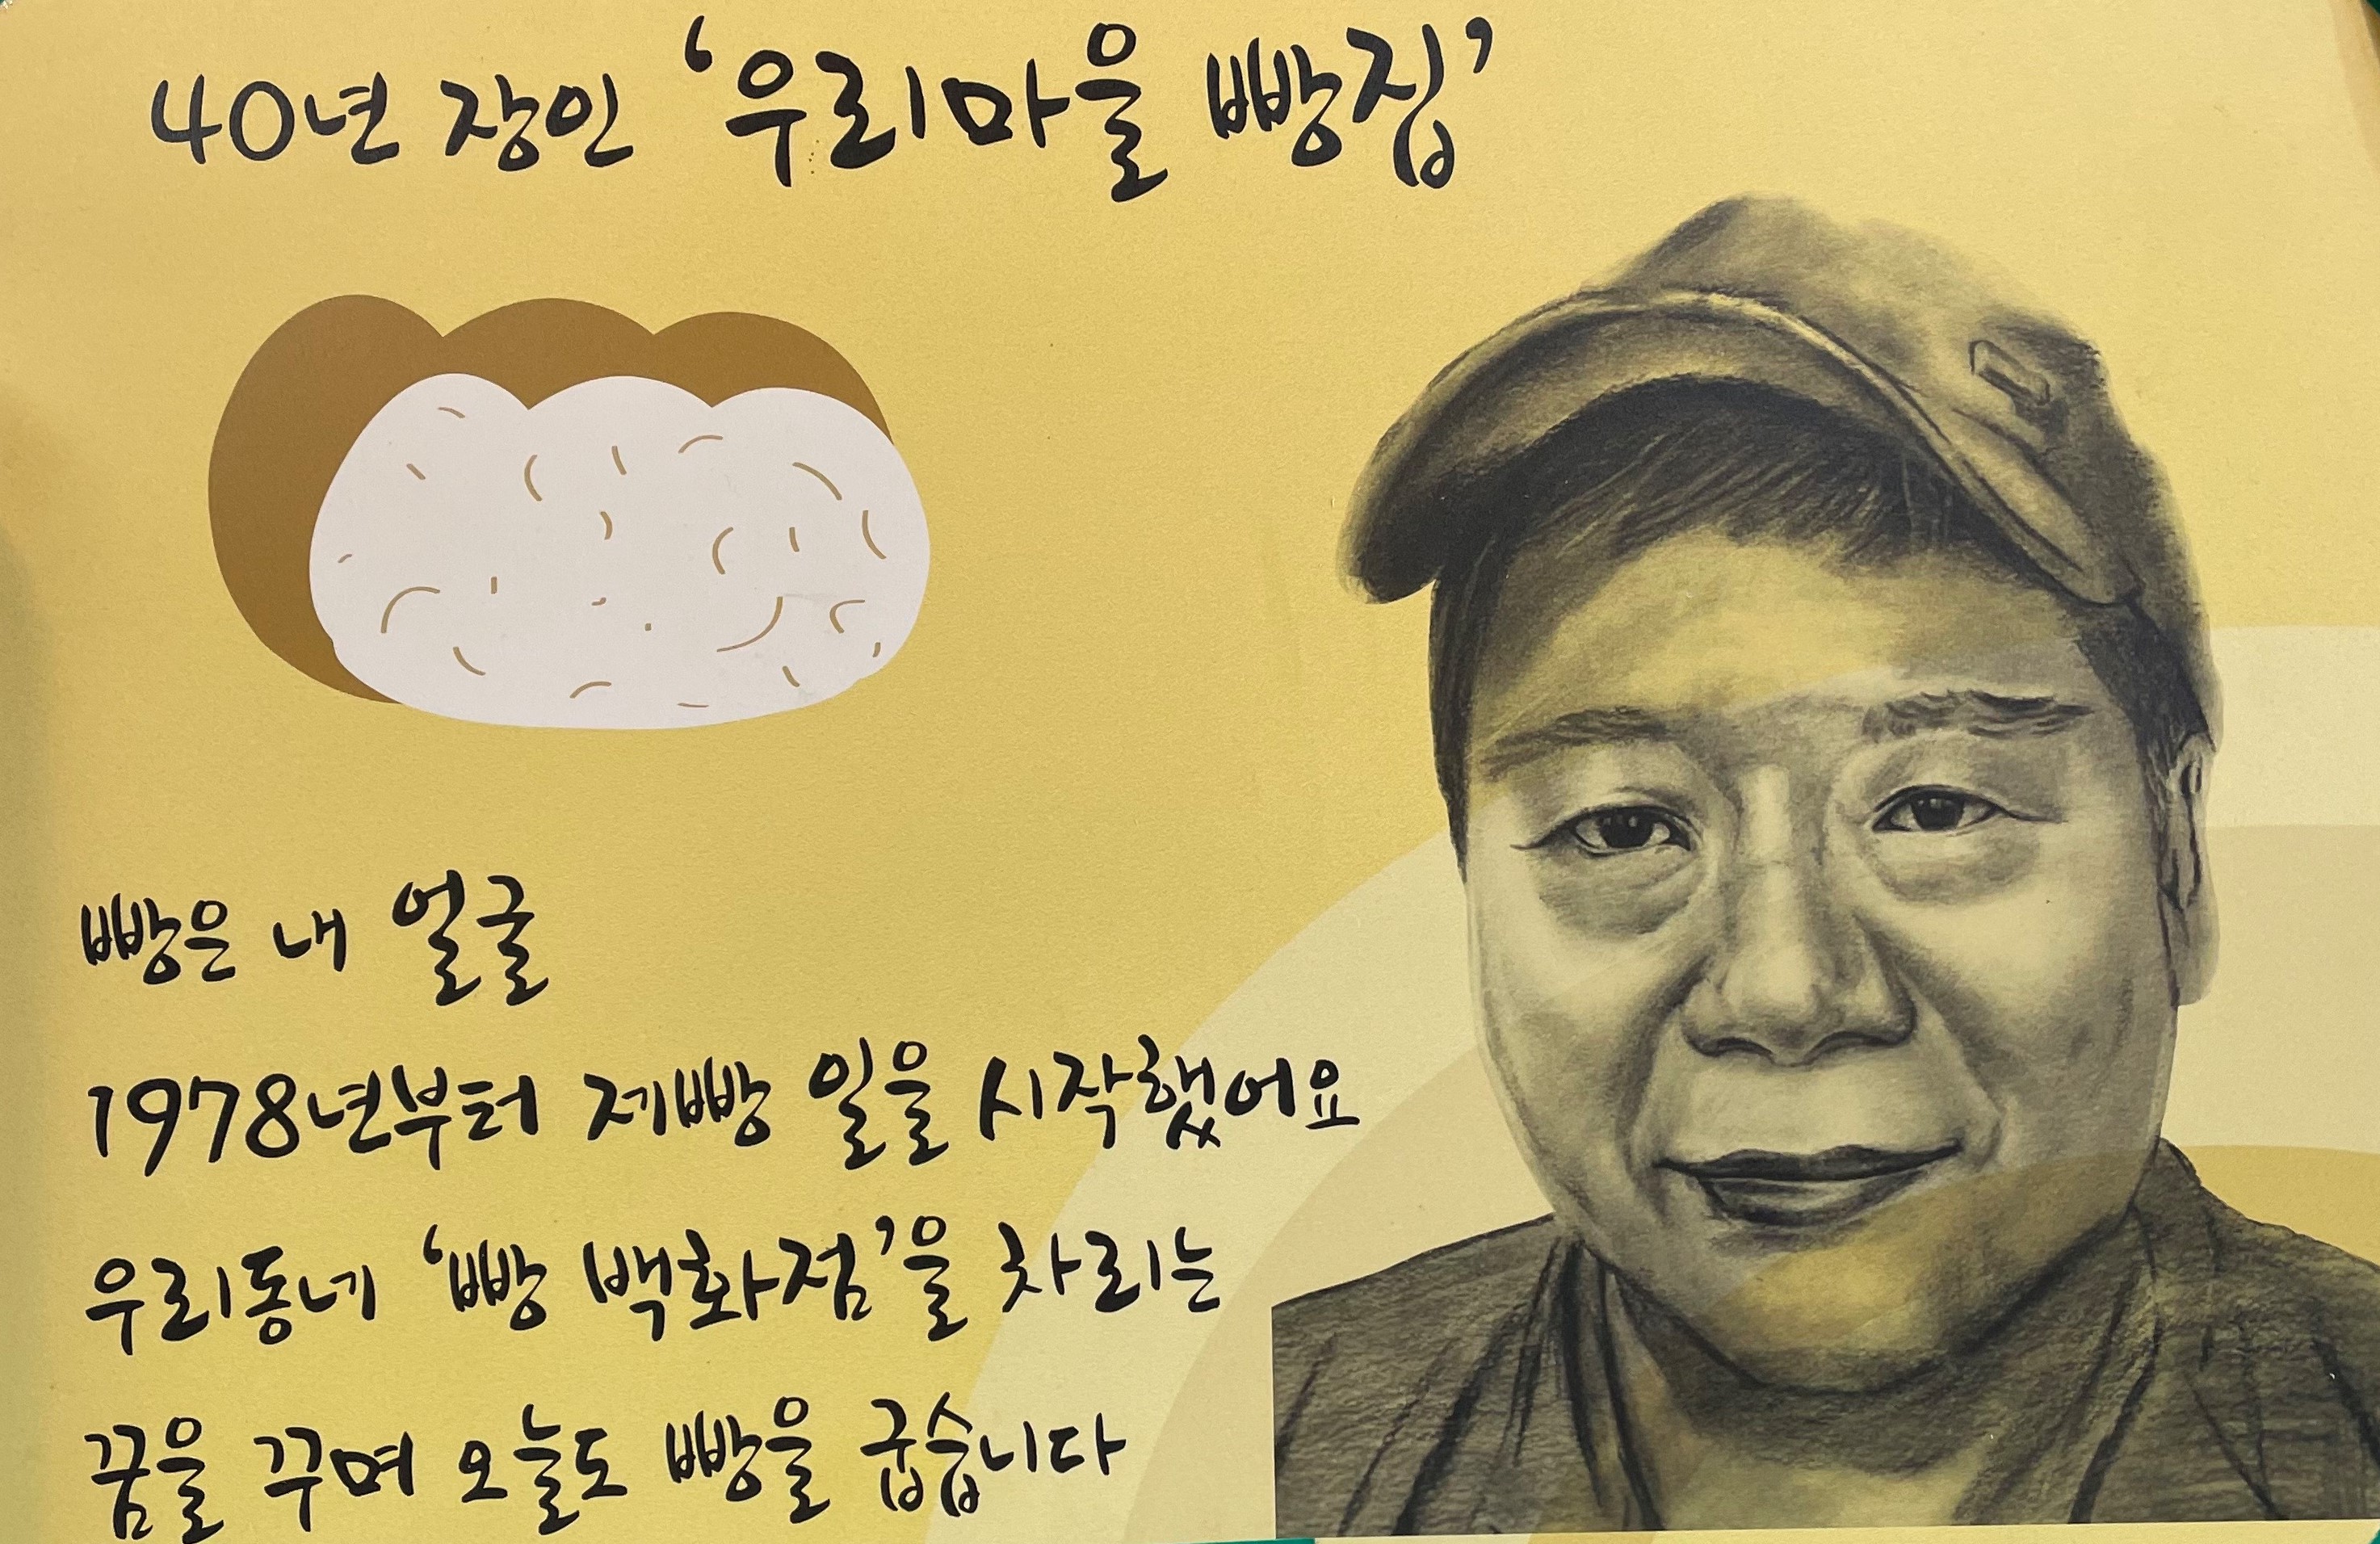 40년 장인 '우리마을 빵집'
빵은 내 얼굴
1978년부터 제빵 일을 시작했어요
우리동네 '빵 백화점'을 차리는
꿈을 꾸며 오늘도 빵을 굽습니다